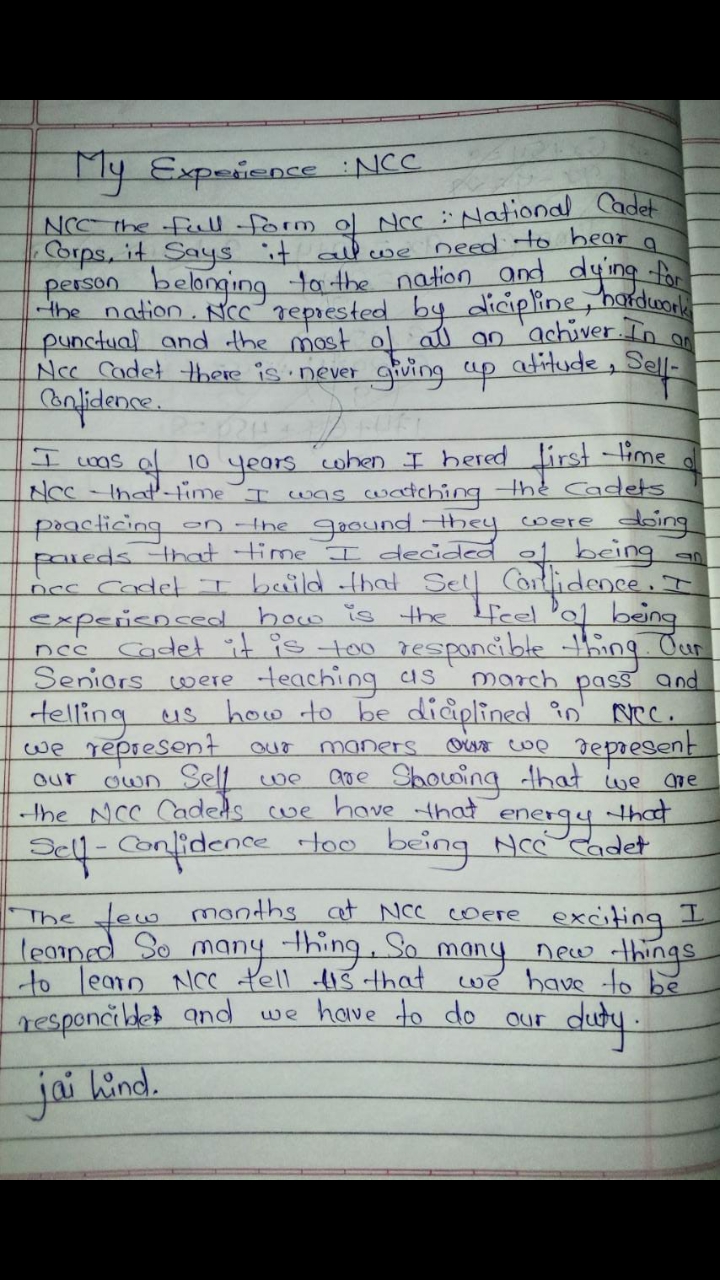 My Experience : NCC
NCC the full form of NCC : National Cadet
Corps, it says it all we need to hear a
person belonging to the nation and dying for
the nation. NCC represted by dicipline, hardwork
punctual and the most of all an achiver. In an
NCC Cadet there is never giving up atitude, Self-
Confidence.
I was of 10 years when I hered first time of
NCC that time I was watching the Cadets
practicing on the ground they were doing
pareds that time I decided of being an
ncc Cadet I build that Self Confidence. I
experienced how is the feel of being
ncc Cadet it is too responcible thing. Our
Seniors were teaching us march pass and
telling us how to be diciplined in NCC.
we represent our maners our we represent
our own Self we are Showing that we are
the NCC Cadets we have that energy that
Self-Confidence too being NCC Cadet
The few months at NCC were exciting I
learned So many thing. So many new things
to learn NCC tell us that we have to be
responcible and we have to do our duty.
jai hind.